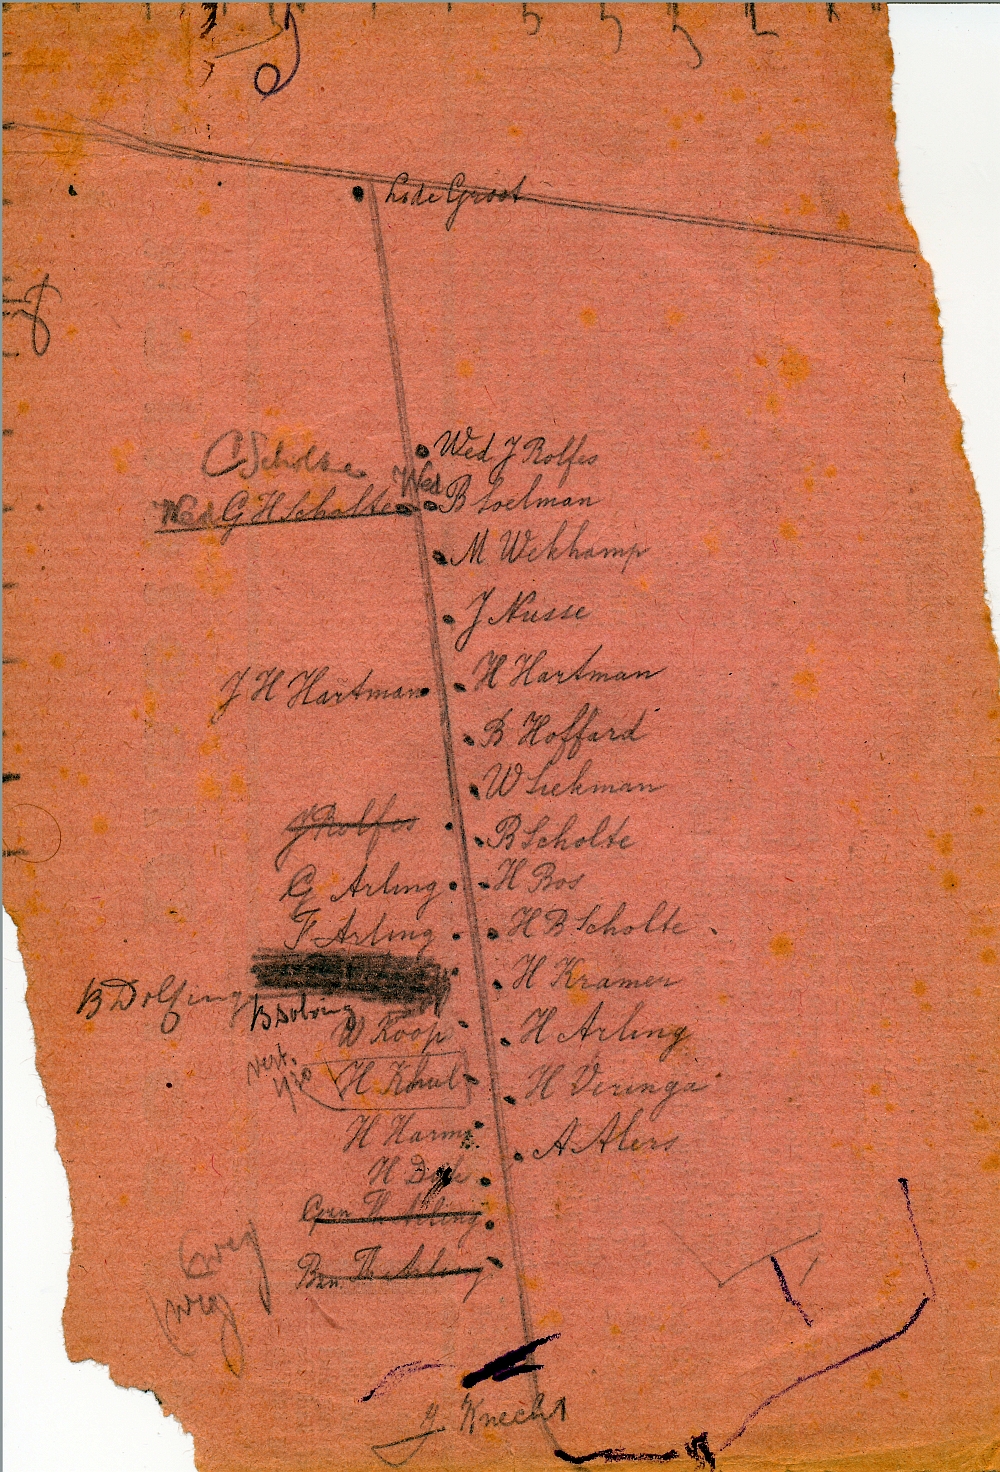 L. de Groot
C Scholte
Wed J Rolfes
Wed
Wed G H Scholte
B Loelman
M Wekhamp
J Nusse
J H Hartman
H Hartman
B Hoffard
W Siekman
J Rolfes
B Scholte
G Arling
H Bos
F Arling
H B Scholte
H Kramer
B Dolfing
B Dolving
W Koop
H Arling
vert.
H Khul
H Veringa
H Harms
A Alers
H
Th Arling
weg
Th Arling
weg
J. Knecht